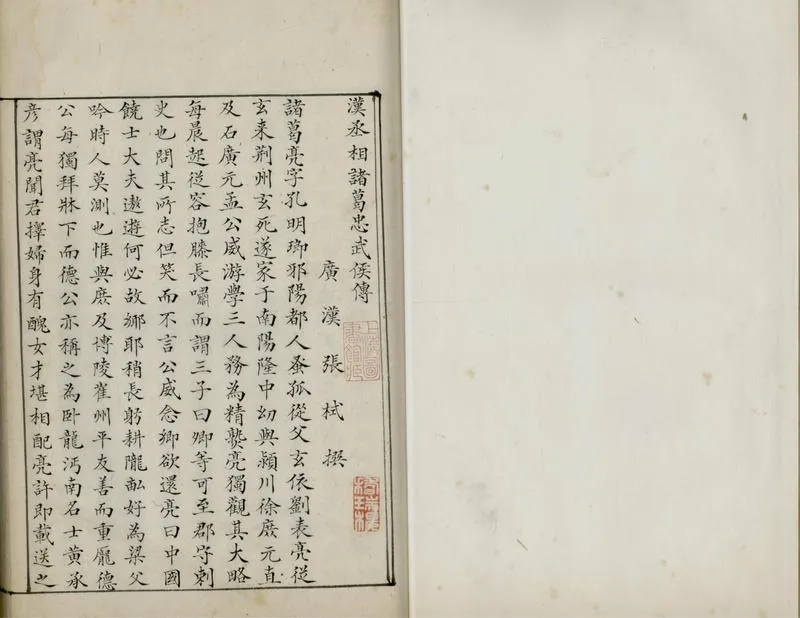 漢丞相諸葛忠武侯傳
廣漢張栻撰
諸葛亮字孔明瑯邪陽都人蚤孤從父玄依劉表亮從
玄来荆州玄死遂家于南陽隆中幼與潁川徐庶元直
及石廣元孟公威游學三人務為精熟亮獨觀其大略
每晨起從容抱膝長嘯而謂三子曰卿等可至郡守刺
史也問其所志但笑而不言公威念鄉欲還亮曰中國
饒士大夫遨遊何必故鄉耶稍長躬耕隴畝好為梁父
吟時人莫測也惟與庶及博陵崔州平友善而重龐德
公每獨拜牀下而德公亦稱之為卧龍沔南名士黄承
彦謂亮聞君擇婦身有醜女才堪相配亮許即載送之
上海圖
書館藏